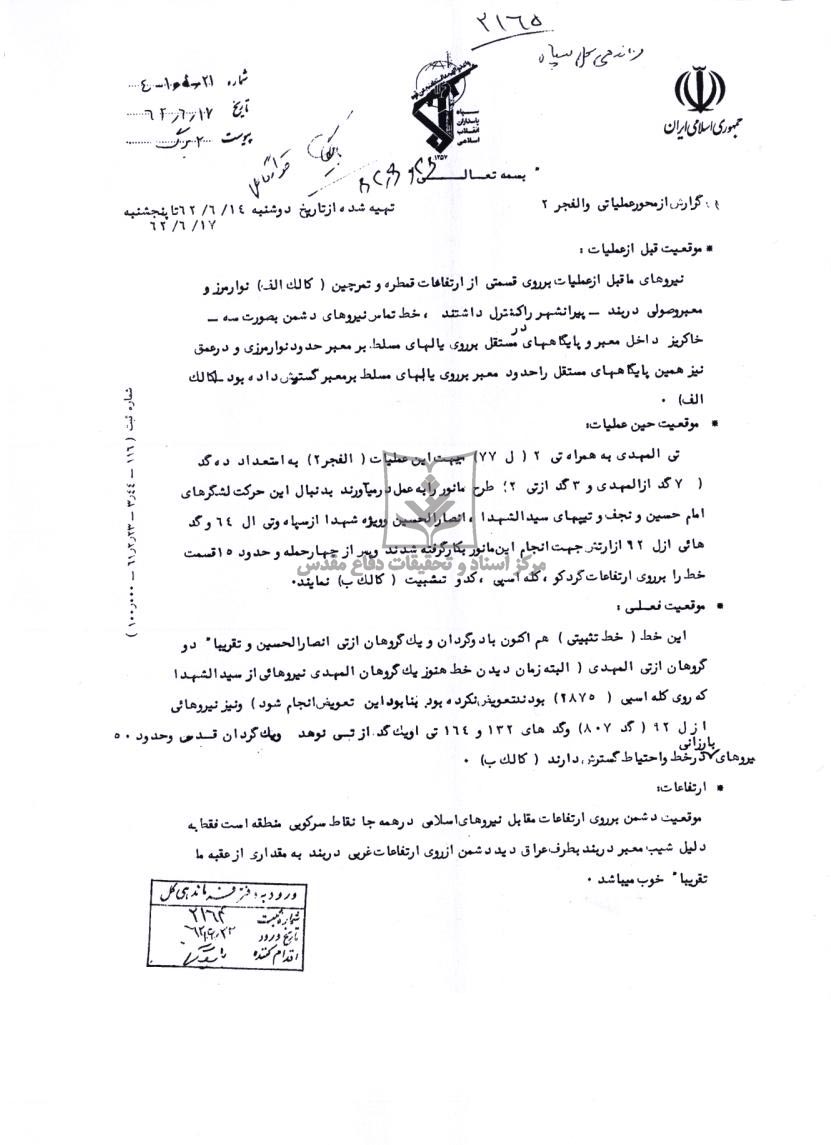 ۲۱۶۵
فرماندهی کل سپاه
جمهوری اسلامی ایران
سپاه
پاسداران
انقلاب
اسلامی
۱۳۵۷
شماره
تاریخ ۶۲/۶/۱۷
پیوست ۲ برگ
بایگانی
بسمه تعالی
گزارش از محور عملیاتی والفجر ۲ تهیه شده از تاریخ دوشنبه ۶۲/۶/۱۴ تا پنجشنبه
۶۲/۶/۱۷
* موقعیت قبل از عملیات :
نیروهای ما قبل از عملیات بر روی قسمتی از ارتفاعات قمطره و تمرچین ( کالك الف) نوار مرز و
معبر وصولی دربند ـ پیرانشهر را کنترل داشتند ، خط تماس نیروهای دشمن بصورت سه ـ
خاکریز داخل معبر و پایگاههای مستقل در بر روی یالهای مسلط بر معبر حدود نوار مرزی و در عمق
نیز همین پایگاههای مستقل را حدود معبر بر روی یالهای مسلط بر معبر گسترش داده بود ـ(کالك
الف) ۰
* موقعیت حین عملیات:
تی المهدی به همراه تی ۲ ( ل ۷۷) جهت این عملیات ( الفجر۲) به استعداد ده گد
( ۷ گد از المهدی و ۳ گد از تی ۲) طرح مانور را به عمل در میآورند بدنبال این حرکت لشگرهای
امام حسین و نجف و تیپهای سیدالشهدا ، انصارالحسین و ویژه شهدا از سپاه و تی ال ۶۴ و گد
هائی از ل ۹۲ از ارتش جهت انجام این مانور بکار گرفته شدند و پس از چهار حمله و حدود ۱۵ قسمت
خط را بر روی ارتفاعات گردکو ، کله اسبی ، کدو تثبیت ( کالك ب) نمایند۰
* موقعیت فعلی :
این خط ( خط تثبیتی ) هم اکنون با دو گردان و یك گروهان از تی انصارالحسین و تقریبا" دو
گروهان از تی المهدی ( البته زمان دیدن خط هنوز یك گروهان المهدی نیروهائی از سیدالشهدا
که روی کله اسبی ( ۲۸۷۵) بودند تعویض نکرده بود بنا بود این تعویض انجام شود ) و نیز نیروهائی
از ل ۹۲ ( گد ۸۰۷) و گد های ۱۳۲ و ۱۶۴ تی ا و یك گد از تی نوهد و یك گردان قدس و حدود ۵۰
نیروهای بارزانی در خط و احتیاط گسترش دارند ( کالك ب) ۰
* ارتفاعات:
موقعیت دشمن بر روی ارتفاعات مقابل نیروهای اسلامی در همه جا نقاط سرکوبی منطقه است فقط به
دلیل شیب معبر دربند بطرف عراق دید دشمن از روی ارتفاعات غربی دربند به مقداری از عقبه ما
تقریبا" خوب میباشد ۰
ورود به دفتر فرماندهی کل
شماره ثبت ۲۱۶۴
تاریخ ورود ۶۲/۶/۲۲
اقدام کننده
شماره ثبت ( ۱۱۶ ـ ۳٫۴۴ ـ ۶۱٫۲٫۲۳ ـ ۱۰۰٫۰۰۰ )
مرکز اسناد و تحقیقات دفاع مقدس